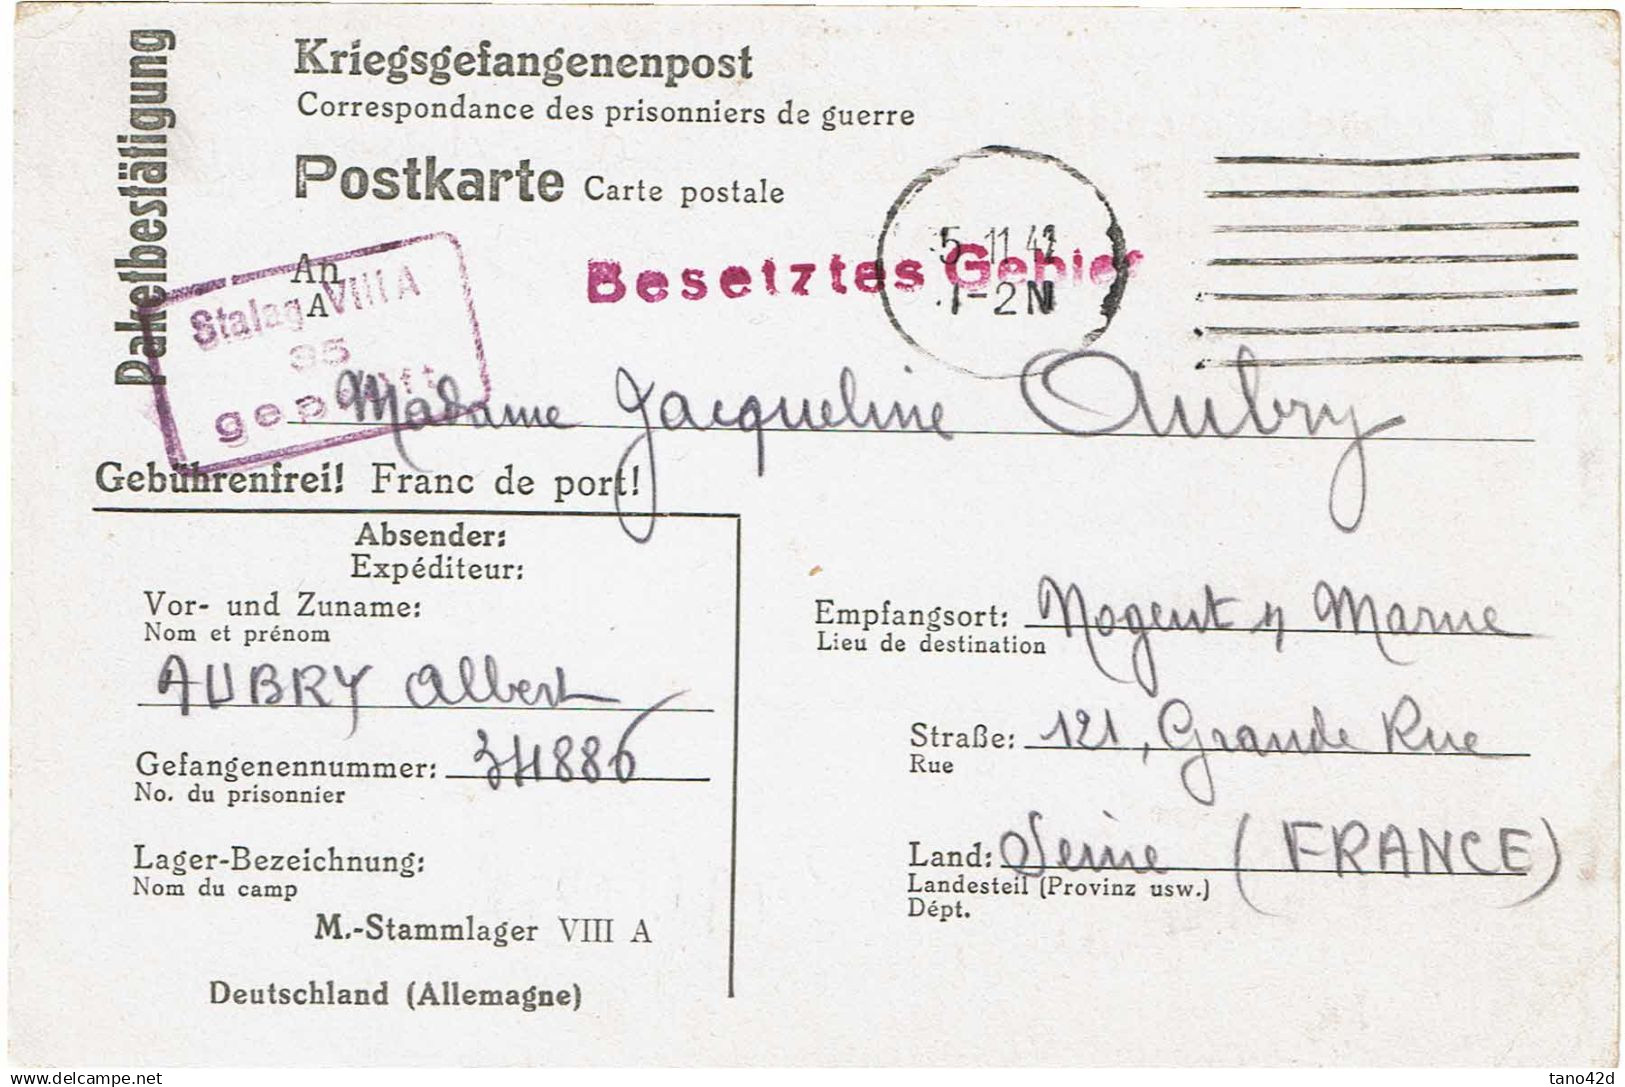 Paketbestätigung
Kriegsgefangenenpost
Correspondance des prisonniers de guerre
Postkarte Carte postale
5.11.42
1-2N
Besetztes Gebiet
An
A
Stalag VIII A
35
geprüft
Madame Jacqueline Aubry
Gebührenfrei! Franc de port!
Absender:
Expéditeur:
Vor- und Zuname:
Nom et prénom
AUBRY Albert
Gefangenennummer: 34886
No. du prisonnier
Lager-Bezeichnung:
Nom du camp
M.-Stammlager VIII A
Deutschland (Allemagne)
Empfangsort: Nogent s/ Marne
Lieu de destination
Straße: 121, Grande Rue
Rue
Land: Seine (FRANCE)
Landesteil (Provinz usw.)
Dépt.
delcampe.net
tano42d